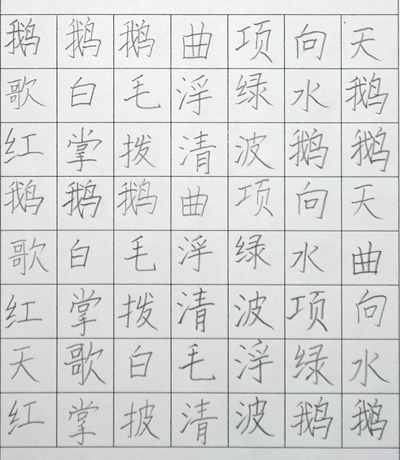 鹅鹅鹅曲项向天
歌白毛浮绿水鹅
红掌拨清波鹅鹅
鹅鹅鹅曲项向天
歌白毛浮绿水曲
红掌拨清波项向
天歌白毛浮绿水
红掌披清波鹅鹅